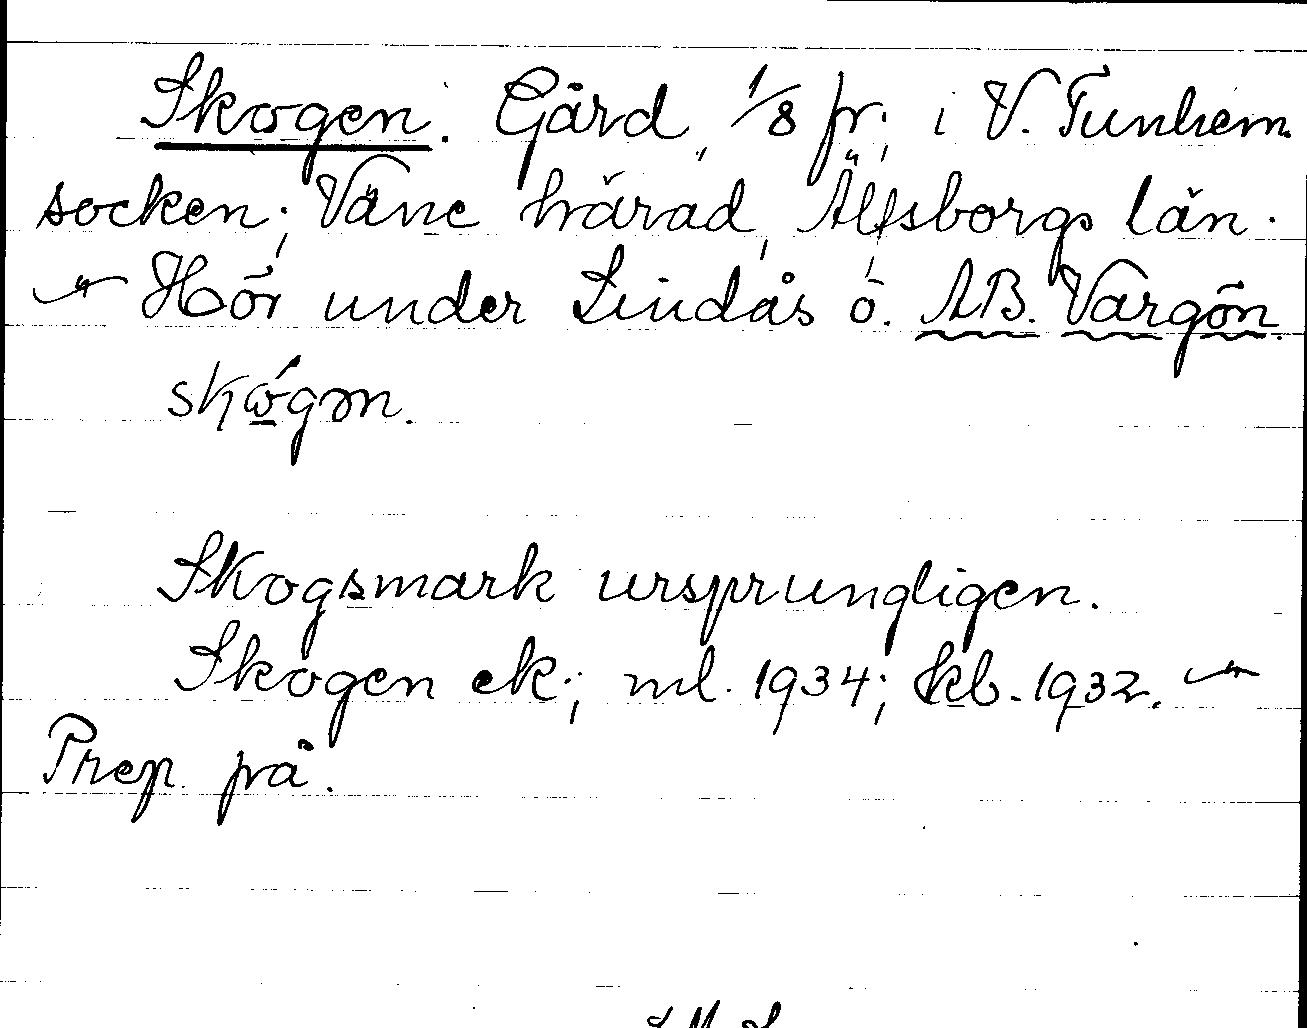 Skogen. Gård, 1/8 fr., i V. Tunhem
socken, Väne härad, Älfsborgs län.
Hör under Lindås ö. AB. Vargön.
skógən.
Skogsmark ursprungligen.
Skogen ek.; ml. 1934; kb. 1932.
Prep. på.